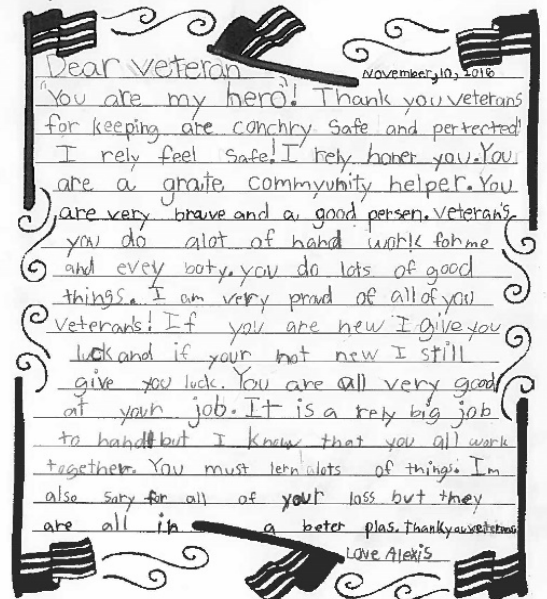 Dear veteran
November,10, 2016
"You are my hero"! Thank you veterans
for keeping are conchry safe and pertected!
I rely feel safe! I rely honer you. You
are a grate commyunity helper. You
are very brave and a good persen. veteran's
you do alot of hand work for me
and evey boty. you do lots of good
things. I am very prod of all of you
veterans! If you are new I give you
luck and if your not new I still
give you luck. You are all very good
at your job. It is a rely big job
to handl but I know that you all work
together. You must lern alots of things. Im
also sary for all of your loss but they
are all in a beter plas. thank you veterans
Love Alexis